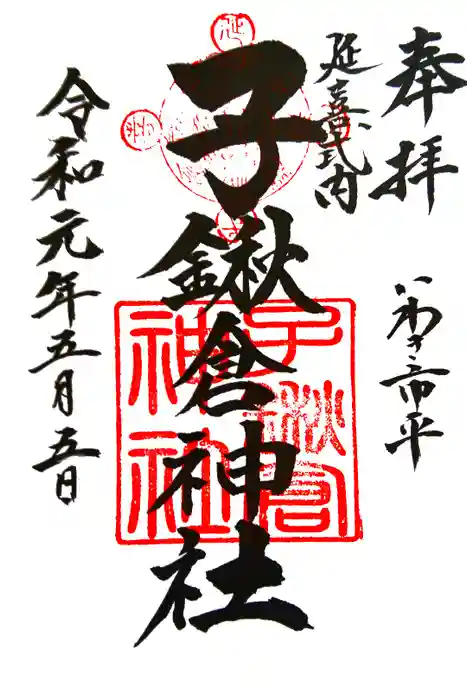 奉拝
延喜式内
いわき市平
子鍬倉神社
令和元年五月五日
子鍬倉
神社